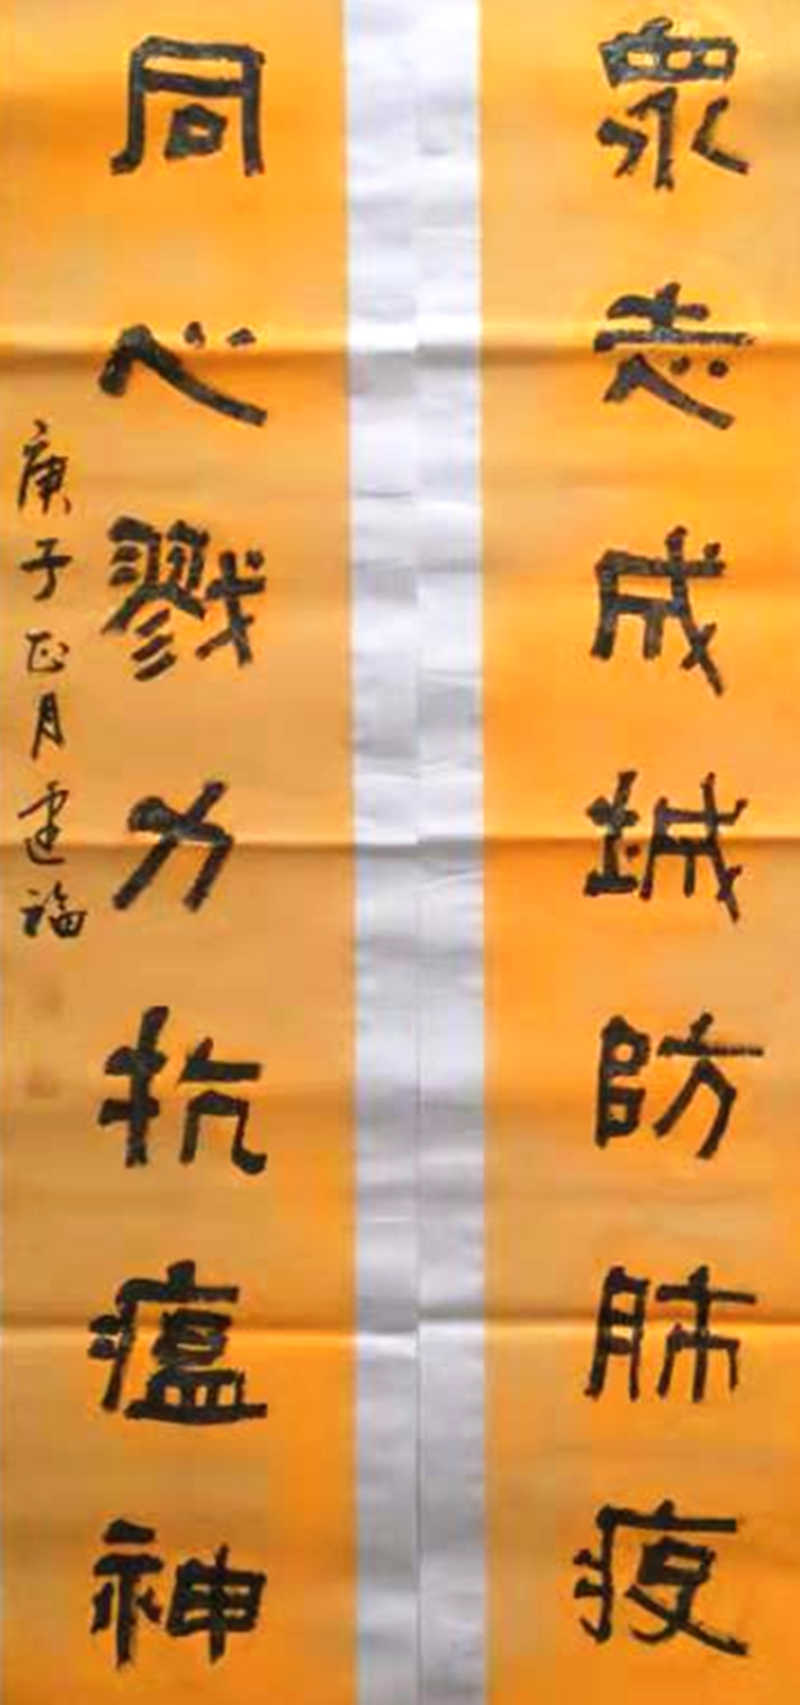 眾志成城防肺疫
同心戮力抗瘟神
庚子正月建福